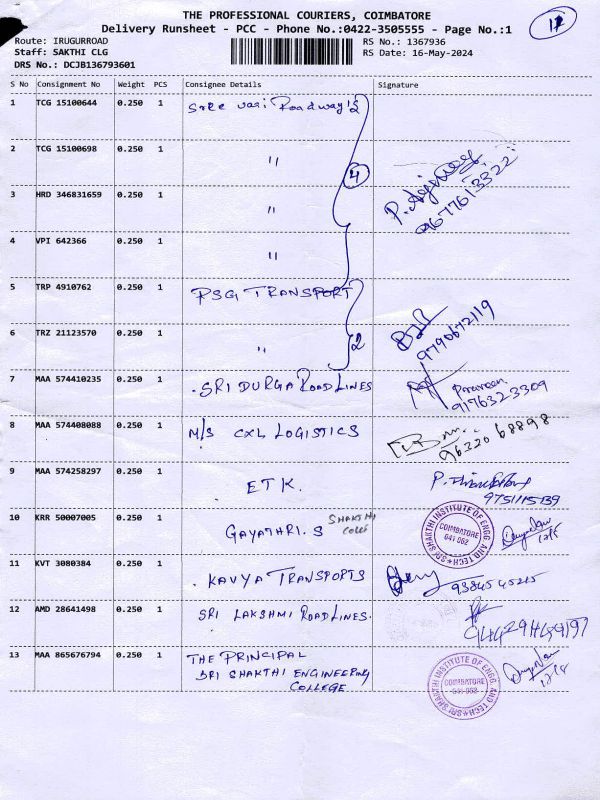 THE PROFESSIONAL COURIERS, COIMBATORE
Delivery Runsheet - PCC - Phone No.:0422-3505555 - Page No.:1
Route: IRUGURROAD
RS No.: 1367936
Staff: SAKTHI CLG
RS Date: 16-May-2024
DRS No.: DCJB136793601
S No Consignment No Weight PCS Consignee Details Signature
1 TCG 15100644 0.250 1 Sree vari Roadway's
2 TCG 15100698 0.250 1 "
4
3 HRD 346831659 0.250 1 "
9677613322
4 VPI 642366 0.250 1 "
5 TRP 4910762 0.250 1 PSG TRANSPORT
6 TRZ 21123570 0.250 1 " 2
9790672119
7 MAA 574410235 0.250 1 SRI DURGA ROAD LINES Praveen
9176323309
8 MAA 574408088 0.250 1 M/S CXL LOGISTICS
96320 68898
9 MAA 574258297 0.250 1 ETK.
10 KRR 50007005 0.250 1 GAYATHRI.S SHAKTHI
SRI SHAKTHI INSTITUTE OF ENGG AND TECH
COIMBATORE
641 062
11 KVT 3080384 0.250 1 KAVYA TRANSPORTS
12 AMD 28641498 0.250 1 SRI LAKSHMI ROAD LINES.
13 MAA 865676794 0.250 1 THE PRINCIPAL
SRI SHAKTHI ENGINEERING
COLLEGE
SRI SHAKTHI INSTITUTE OF ENGG AND TECH
COIMBATORE
641 062